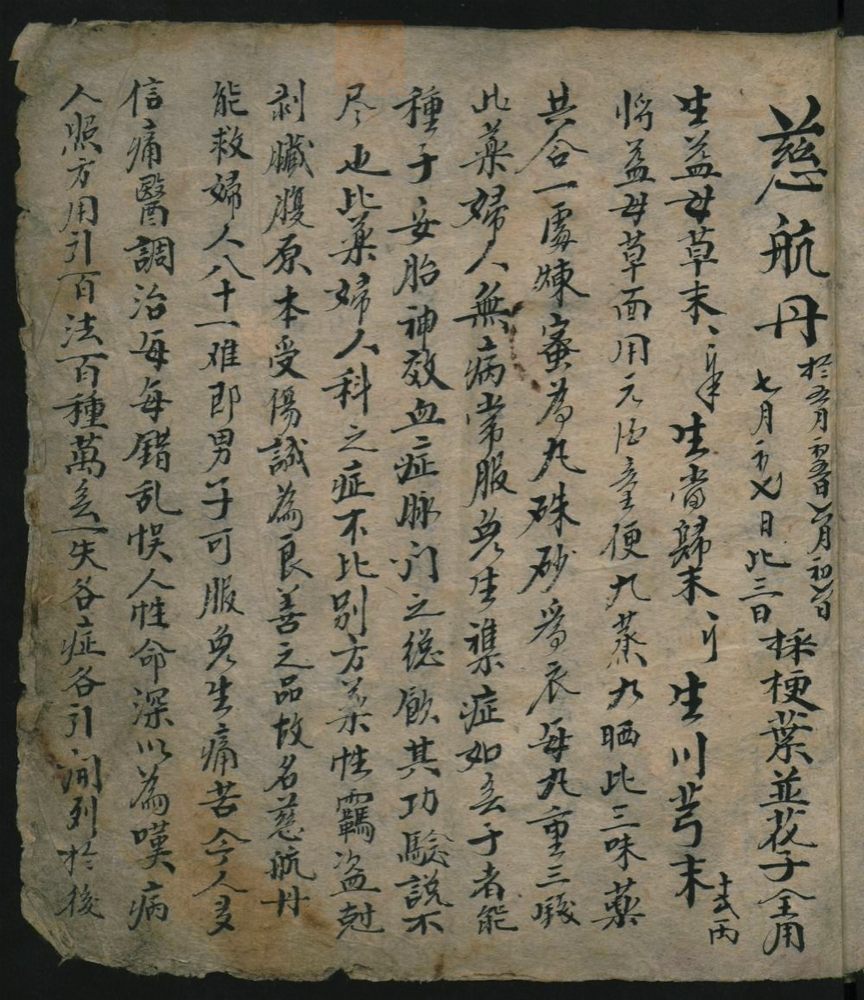 慈航丹 於五月初五日六月初六日
七月初七日此三日採梗葉並花子全用
生益母草末 生當歸末 生川芎末
將益母草面用元酒童便九蒸九晒此三味藥
共合一處煉蜜為丸硃砂為衣每丸重三錢
此藥婦人無病常服免生雜症如無子者能
種子安胎神效血症脉门之總飲其功騐說不
尽也比藥婦人科之症不比别方药性霸盗尅
剥臟腹原本受傷誠為良善之品故名慈航丹
能救婦人八十一难即男子可服免生痛苦今人多
信痛醫調治每每錯乱悞人性命深以為嘆病
人照方用引百法百種萬無一失各症各引開列於後